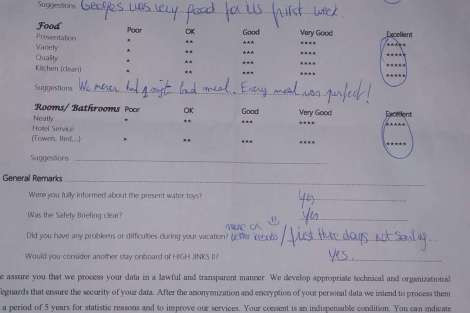 Suggestions Georges was very good for us first week.
Food Poor OK Good Very Good Excellent
Presentation * ** *** **** *****
Variety * ** *** **** *****
Quality * ** *** **** *****
Kitchen (clean) * ** *** **** *****
Suggestions We never had a bad meal. Every meal was perfect!
Rooms/ Bathrooms Poor OK Good Very Good Excellent
Neatly * ** *** **** *****
Hotel Service
(Towels, Bed,...) * ** *** **** *****
Suggestions
General Remarks
Were you fully informed about the present water toys? Yes
Was the Safety Briefing clear? Yes
Did you have any problems or difficulties during your vacation? / first three days not sailing..
Would you consider another stay onboard of HIGH JINKS II? YES.
e assure you that we process your data in a lawful and transparent manner. We develop appropriate technical and organizational
feguards that ensure the security of your data. After the anonymization and encryption of your personal data we intend to process them
a period of 5 years for statistic reasons and to improve our services. Your consent is an indispensable condition. You can indicate